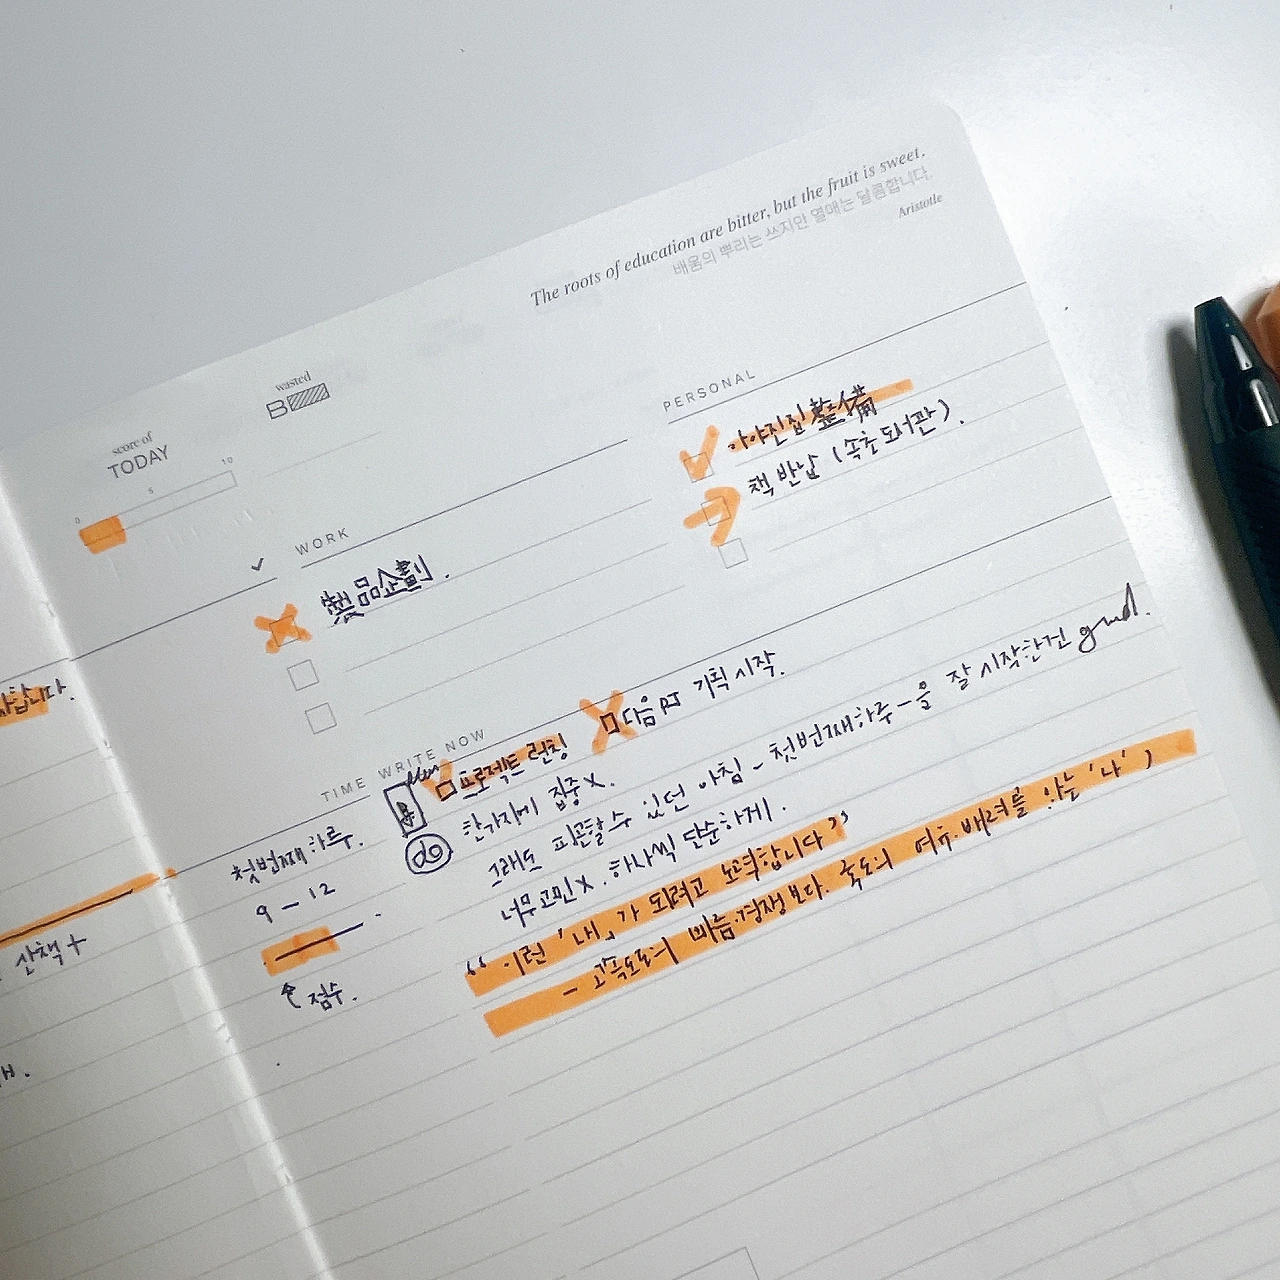 The roots of education are bitter, but the fruit is sweet.
배움의 뿌리는 쓰지만 열매는 달콤합니다.
Aristotle
wasted
B
score of
TODAY
0 5 10
WORK
製品企劃.
PERSONAL
아야진집 整備
책 반납 (속초도서관).
TIME WRITE NOW
프로젝트 런칭
다음 PJ 기획 시작.
첫번째 하루.
9 - 12
점수.
do
한가지에 집중 X.
그래도 피곤할 수 있던 아침 - 첫번째 하루 - 을 잘 시작한건 good.
너무 고민 X. 하나씩 단순하게.
“ 이런 '내」가 되려고 노력합니다 ”
- 고속도로의 빠름.경쟁보다. 국도의 여유.배려를 아는 '나')
니다.
산책 +